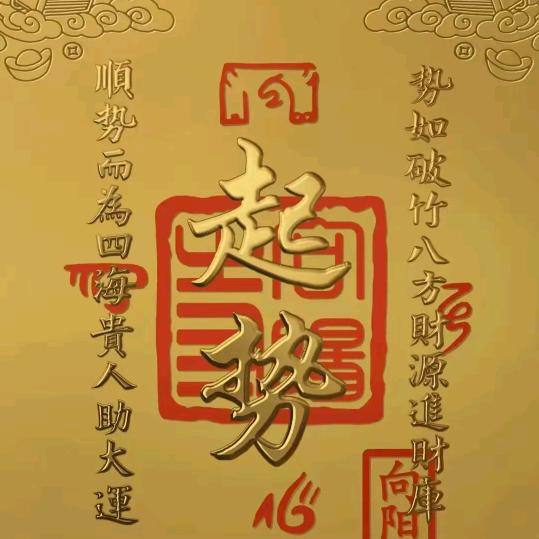 勢如破竹八方財源進財庫
起势
順势而為四海貴人助大運
向阳